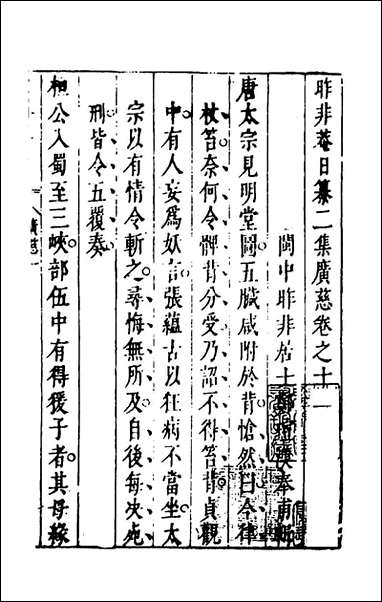 昨非菴日纂二集廣慈卷之十一
閩中昨非居士鄭瑄奉甫
唐太宗見明堂圖五臟咸附於背愴然曰今律
杖笞奈何令髀背分受乃詔不得笞背貞觀
中有人妄爲妖言張蘊古以狂病不當坐太
宗以有情令斬之尋悔無所及自後每决死
刑皆令五覆奏
桓公入蜀至三峽部伍中有得猨子者其母緣
廣慈一